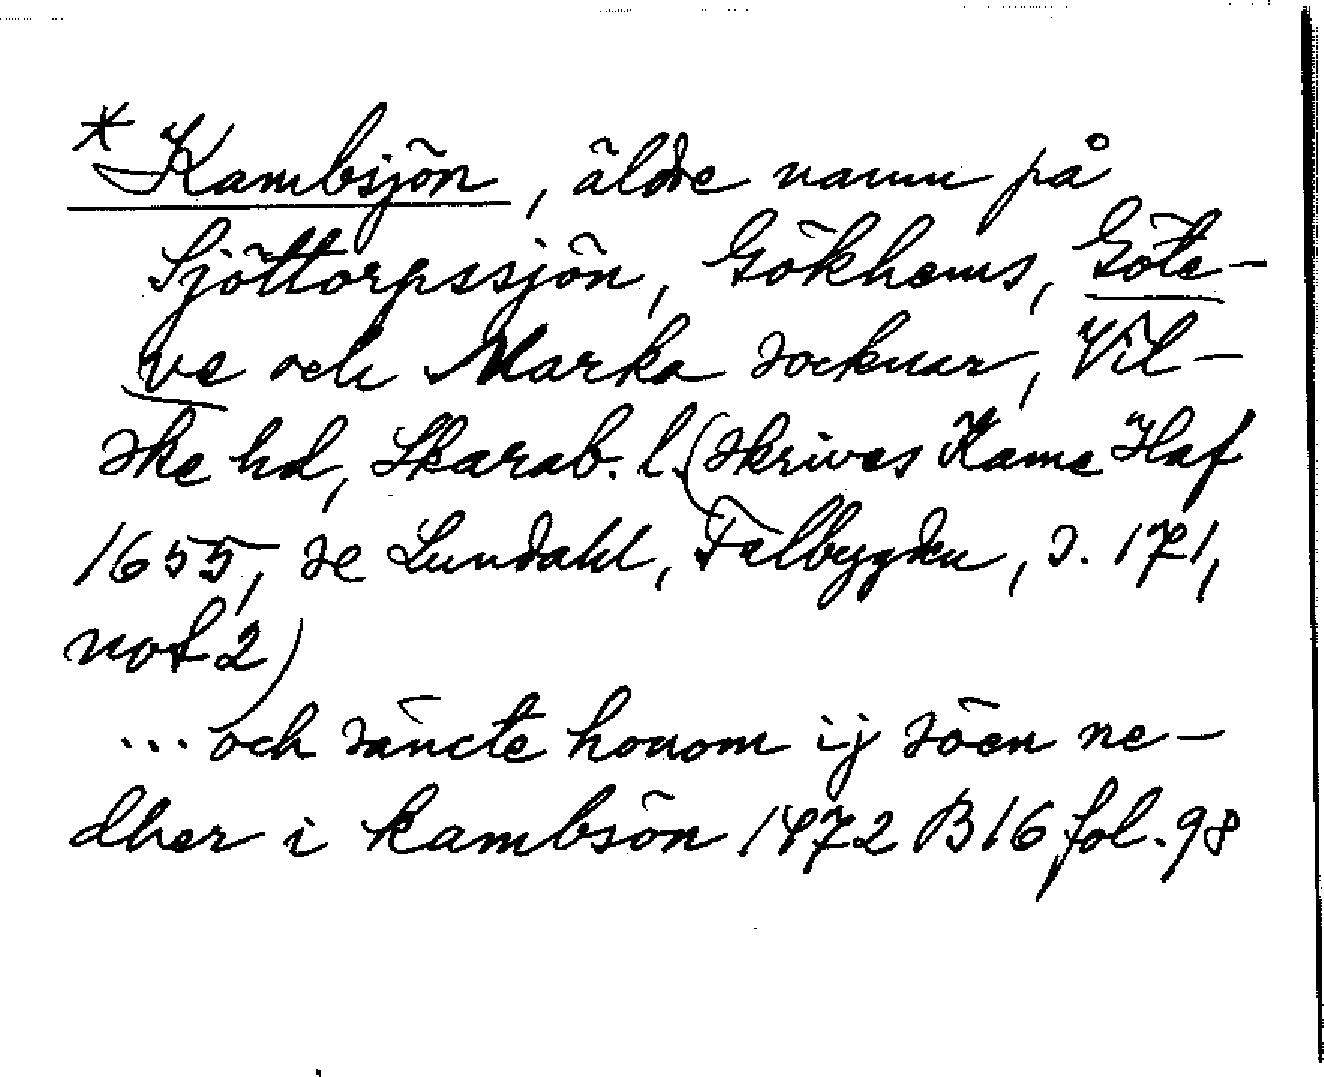 * Kambsjön, äldre namn på
Sjöttorpssjön, Gökhems, Göte-
ve och Marka socknar, Vil-
ske hd, Skarab. l. (skrives Kame Haf
1655, se Lundahl, Falbygden, s. 171,
not 2)
... och säncte honom ij söen ne-
dher i kambsön 1472 B16 fol. 98